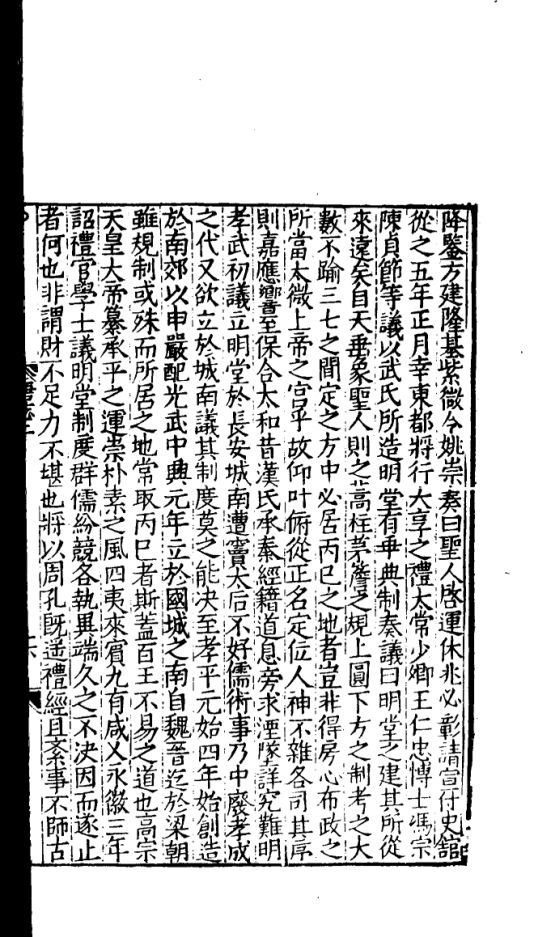 降鑒方建隆基紫微令姚崇奏曰聖人啓運休兆必彰請宣付史舘
從之五年正月幸東都將行大享之禮太常少卿王仁忠博士馮宗
陳貞節等議以武氏所造明堂有乖典制奏議曰明堂之建其所從
來遠矣自天垂象聖人則之蒿柱茅簷之規上圓下方之制考之大
數不踰三七之間定之方中必居丙巳之地者豈非得房心布政之
所當太微上帝之宫乎故仰叶俯從正名定位人神不雜各司其序
則嘉應響至保合太和昔漢氏承秦經籍道息旁求湮墜詳究難明
孝武初議立明堂於長安城南遭竇太后不好儒術事乃中廢孝成
之代又欲立於城南議其制度莫之能决至孝平元始四年始創造
於南郊以申嚴配光武中興元年立於國城之南自魏晉迄於梁朝
雖規制或殊而所居之地常取丙巳者斯蓋百王不易之道也高宗
天皇大帝纂承平之運崇朴素之風四夷來賓九有咸乂永徽三年
詔禮官學士議明堂制度群儒紛競各執異端久之不决因而遂止
者何也非謂財不足力不堪也將以周孔旣遥禮經且紊事不師古